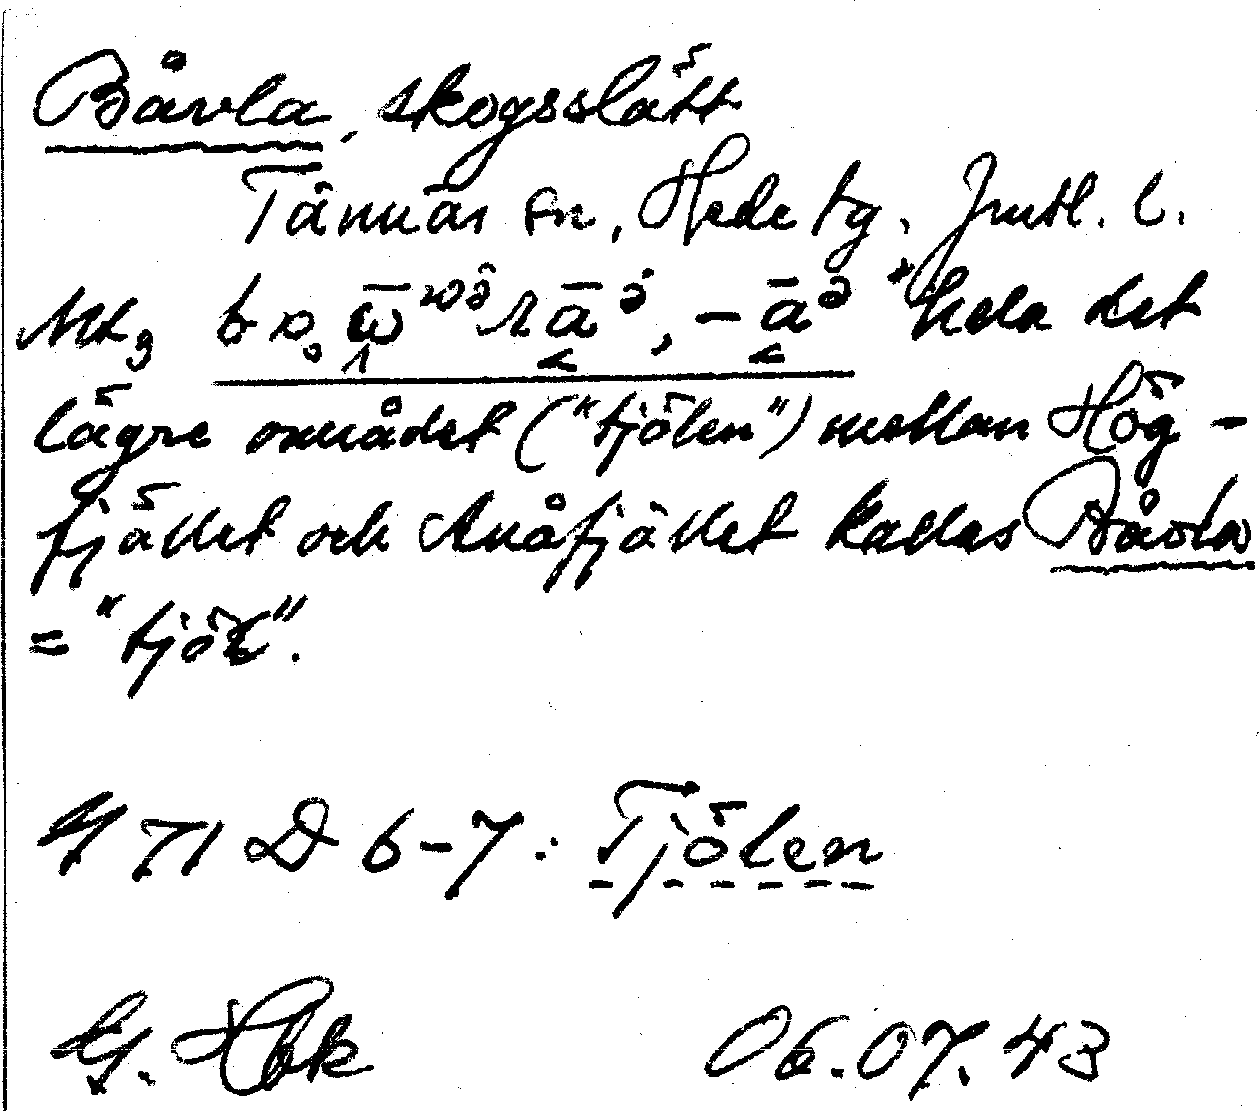 Båvla, skogsslått
Tännäs sn, Hede tg. Jmtl. l.
hela det
lägre området ("tjölen") mellan Hög-
fjället och Anåfjället kallas Båvla
= "tjöl".
71 D 6-7: Tjölen
G. Hbk 06.07.43